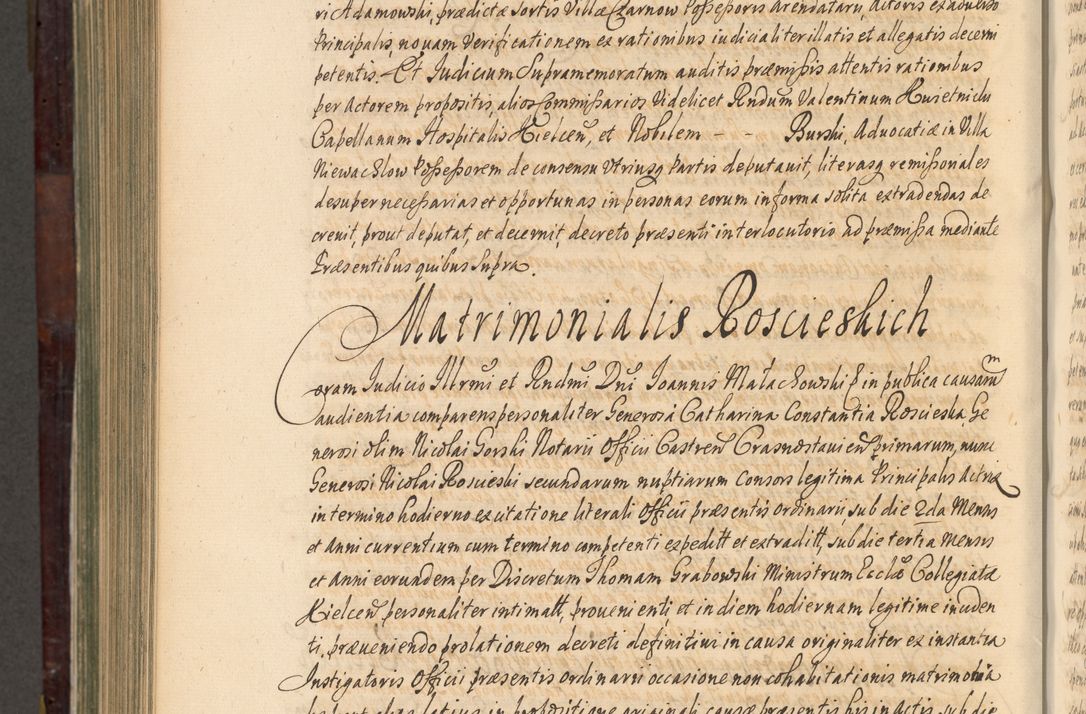 ri Adamowski, prædictæ sortis Villæ Czarnow Possessoris Arendatarii, Actoris ex adverso
Principalis, novam verificationem ex rationibus iudicialiter illatis et allegatis decerni
petentis. Et Iudicium Supramemoratum auditis præmissis attentis rationibus
per Actorem propositis, alios Commissarios Videlicet Rndum Valentinum Kusietnicki
Capellanum Hospitalis Kielcen̄, et Nobilem - - Burski, Advocatiæ in Villa
Niewachlow Possessorem de consensu Vtriusq Partis deputauit, literasq remissoriales
desuper necessarias et opportunas in personas eorum in forma solita extradendas de
creuit, prout deputat, et decernit, decreto præsenti interlocutorio ad præmissa mediante
Præsentibus quibus supra.
Matrimonialis Rosciеskich
Coram Iudicio Illrmi et Rndmi Dni Ioannis Małachowski E in publica causarm
audientia comparens personaliter Generosa Catharina Constantia Rosciеska, Ge
nerosi olim Nicolai Gorski Notarii Officii Castren̄ Crasnostavien̄ primarum, nunc
Generosi Nicolai Roscieski secundarum nuptiarum Consors legitima Principalis Actrix
in termino hodierno ex citatione literali Officii præsentis ordinarii, sub die 2da Mensis
et Anni currentium cum termino competenti expeditt et extraditt, sub die tertia Mensis
et Anni eorundem per Discretum Thomam Grabowski Ministrum Ecclæ Collegiatæ
Kielcen̄ personaliter intimatt, prouenienti, et in diem hodiernam legitime inciden
ti, præveniendo prolationem decreti definitiui in causa originaliter ex instantia
Instigatoris Officii præsentis ordinarii occasione non cohabitationis matrimonia